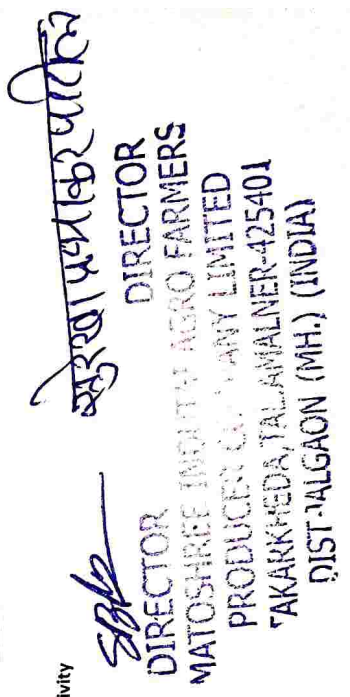 ivity
सुरेखा प्रभाकर पाटील
DIRECTOR DIRECTOR
MATOSHREE AGRO FARMERS
PRODUCER COMPANY LIMITED
TAKARKHEDA, TAL. AMALNER-425401
DIST-JALGAON (MH.) (INDIA)